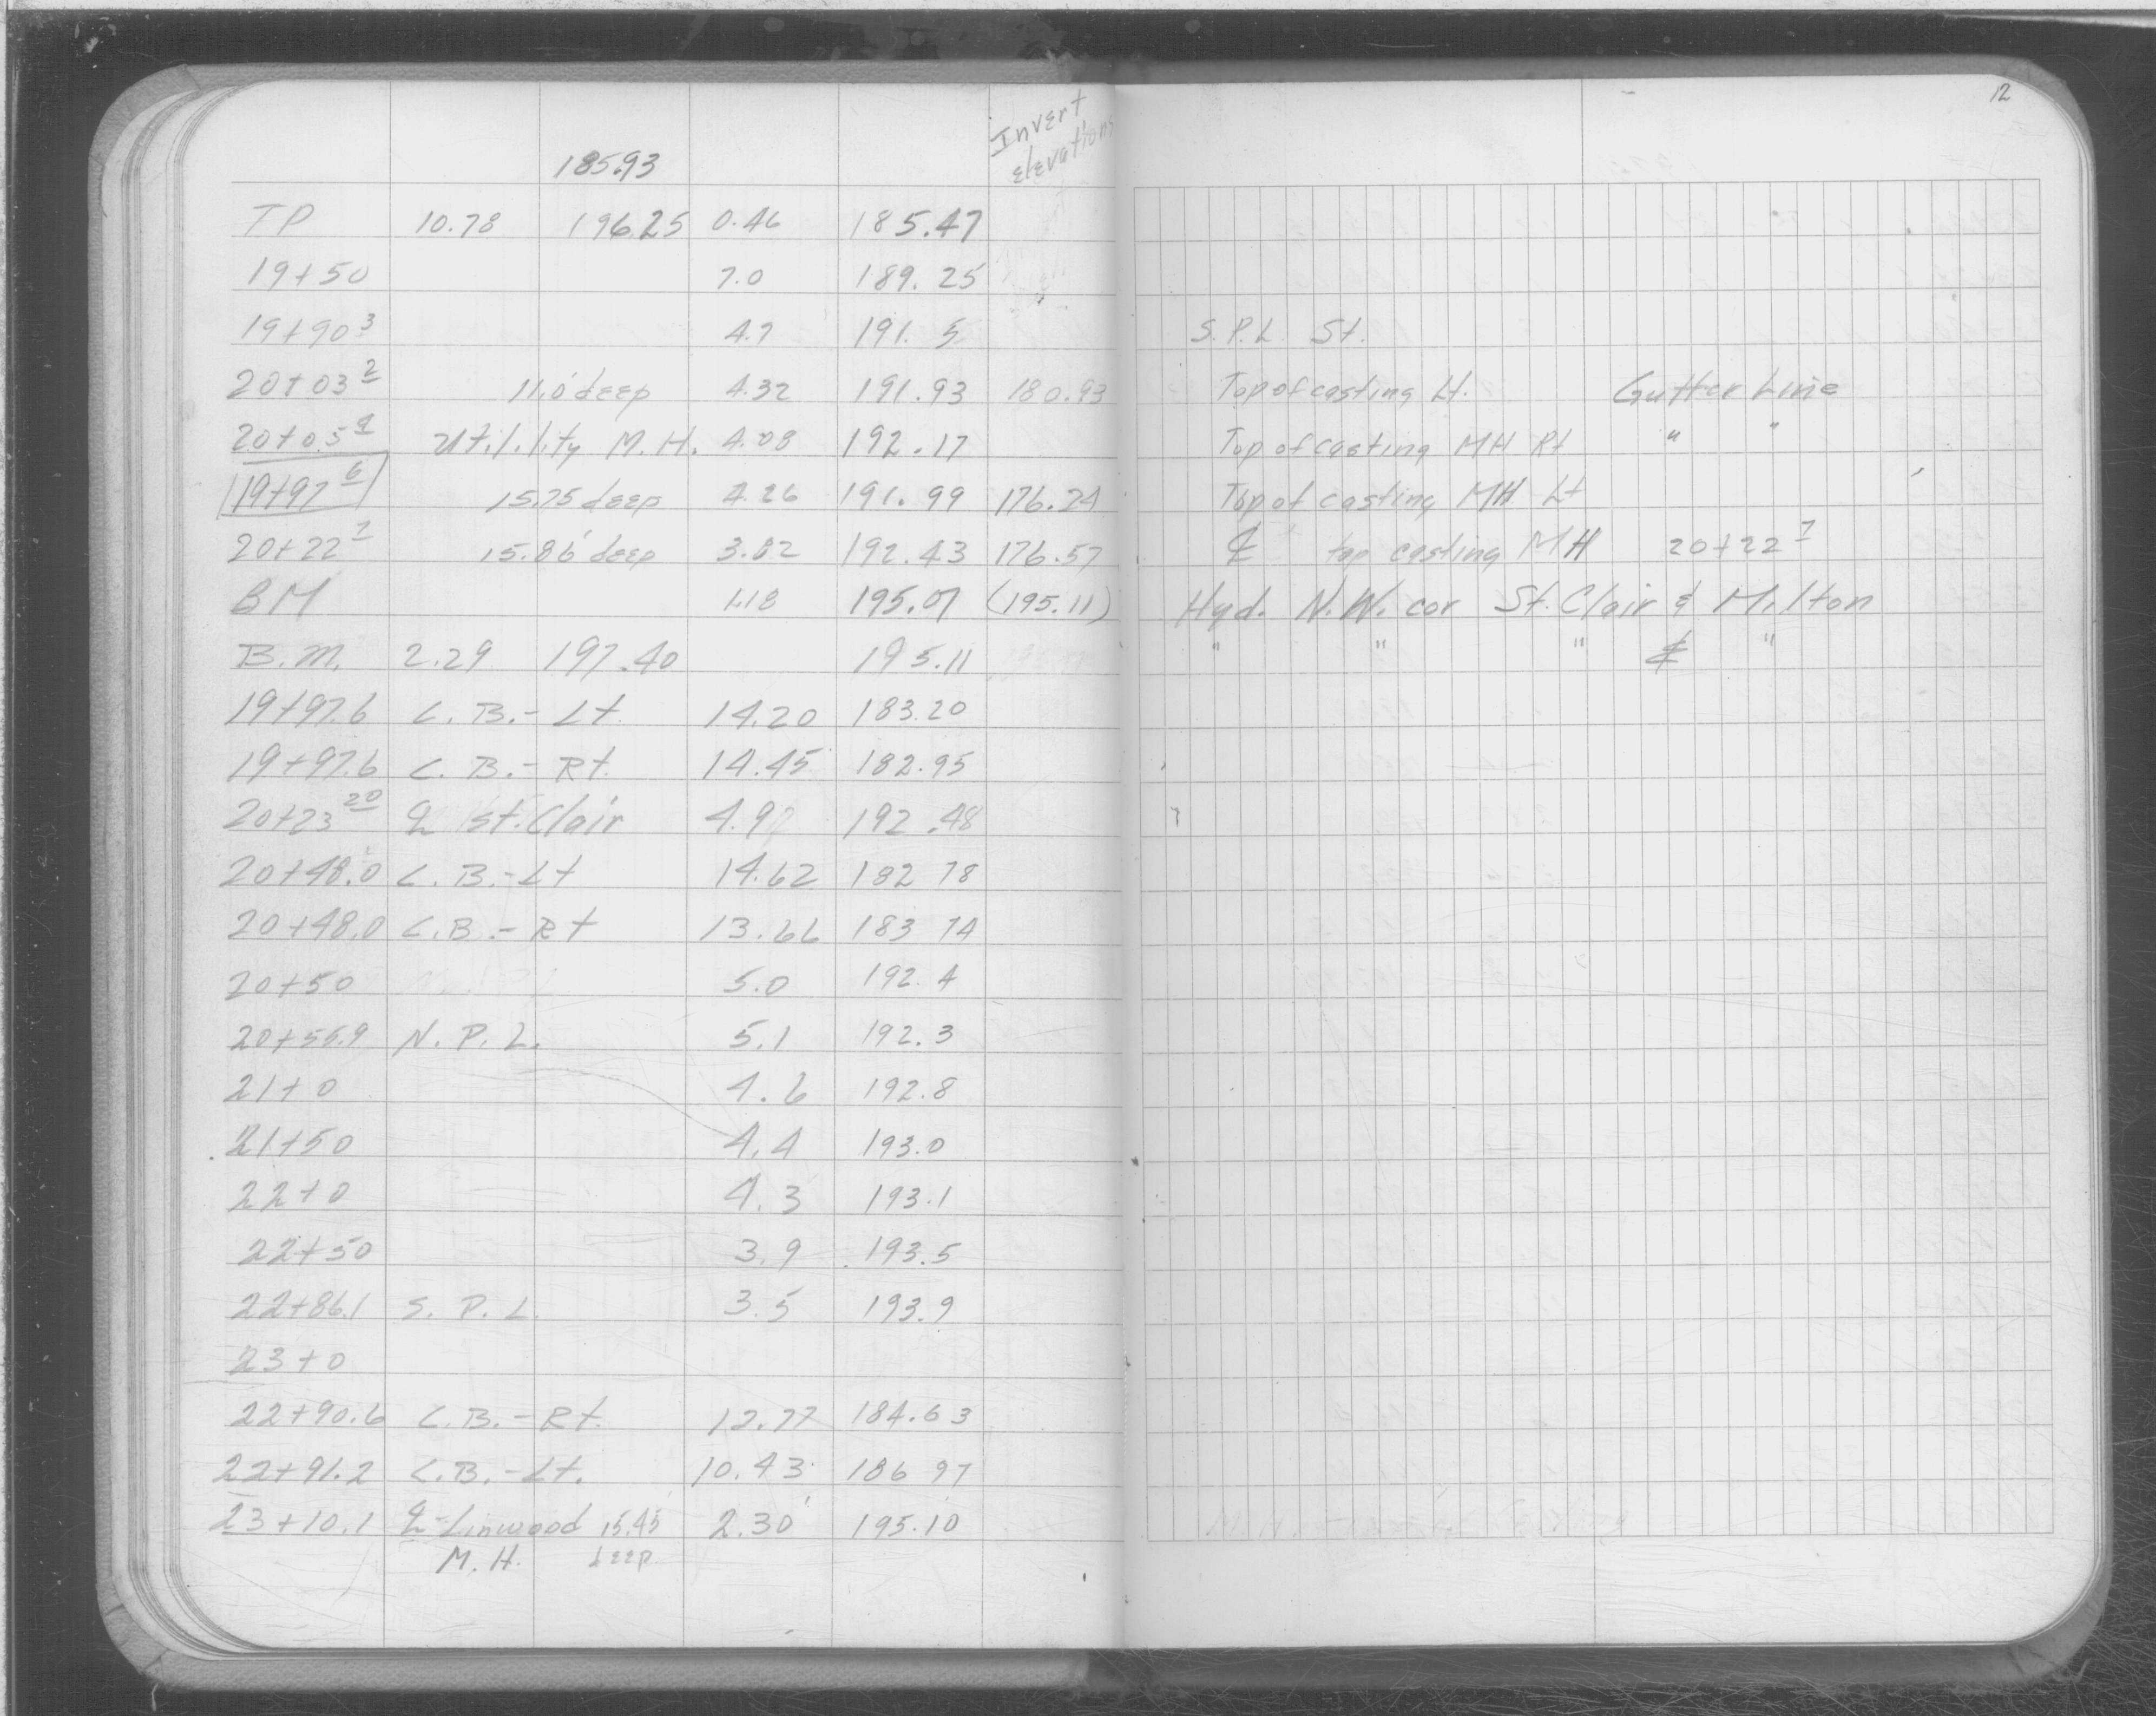 12
Invert
elevations
185.93
TP 10.78 196.25 0.46 185.47
19+50 7.0 189.25
19+90 3 4.7 191.5 S.P.L. St.
20+03 2 11.0' deep 4.32 191.93 180.93 Top of casting Lt. Gutter Line
20+05 9 Utility M.H. 4.08 192.17 Top of casting MH Rt " "
19+97 6 15.75 deep 4.26 191.99 176.24 Top of casting MH Lt
20+22 7 15.86' deep 3.82 192.43 176.57 ℄ top casting MH 20+22 7
BM 1.18 195.07 (195.11) Hyd. N.W. cor St. Clair & Milton
B.M. 2.29 197.40 195.11 " " " & "
19+97.6 C.B.-Lt. 14.20 183.20
19+97.6 C.B.-Rt. 14.45 182.95
20+23 20 ℄ St. Clair 4.92 192.48
20+48.0 C.B.-Lt 14.62 182 78
20+48.0 C.B.-Rt 13.66 183 74
20+50 5.0 192.4
20+55.9 N.P.L. 5.1 192.3
21+0 4.6 192.8
21+50 4.4 193.0
22+0 4.3 193.1
22+50 3.9 193.5
22+86.1 S.P.L. 3.5 193.9
23+0
22+90.6 C.B.-Rt. 12.77 184.63
22+91.2 C.B.-Lt. 10.43 186 97
23+10.1 ℄-Linwood 15.45 2.30 195.10
M.H. deep